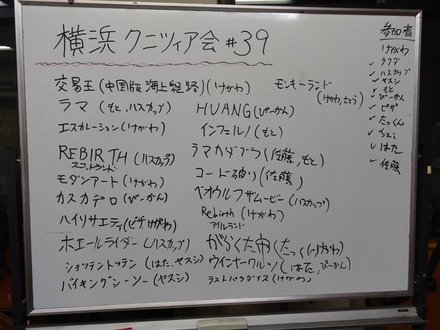 横浜 クニツィア会 #39
交易王(中国版 海上経路)(けがわ)
ラマ (もと, ハスカップ)
エスカレーション(けがわ)
REBIRTH (ハスカップ)
スコットランド
モダンアート(けがわ)
カスカデロ(ぴーかん)
ハイソサエティ(ピザ けがわ)
ホエールライダー(ハスカップ)
ショッテントッテン (はた, ヤスシ)
バイキングシーソー(ヤスシ)
モンキーランド
HUANG(ぴーかん)
インフェルノ(もと)
ラマカダブラ(佐藤, もと)
コード破り(佐藤)
ベオウルフ ザ・ムービー(ハスカップ)
Rebirth (けがわ)
アイルランド
がらくた市(たっくん けがわ)
ウインナーワルツ(はた, ぴーかん)
ラストパラダイス(けがわ)
参加者
けがわ
✓ ラクダ
✓ ハスカップ
✓ ヤスシ
✓ もと
✓ ぴーかん
✓ ピザ
✓ たっくん
✓ はた
✓ 佐藤